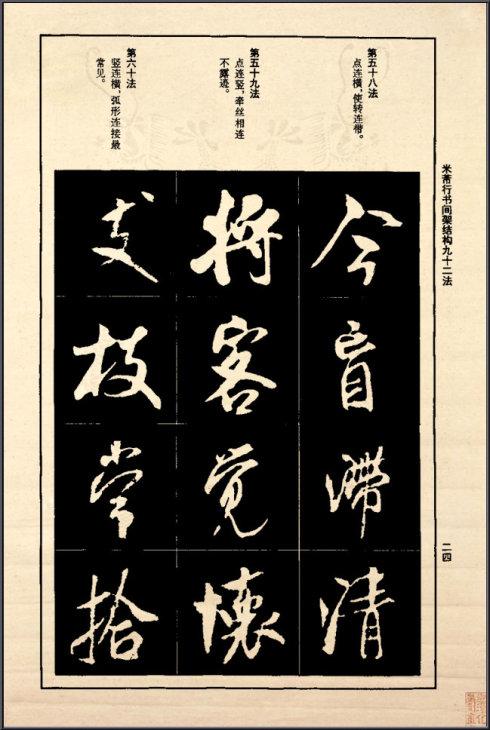 米芾行书间架结构九十二法
二四
第五十八法
点连横，使转连带。
第五十九法
点连竖，牵丝相连
不露迹。
第六十法
竖连横，弧形连接最
常见。
今盲滯清
将客觉懷
支枝常拾